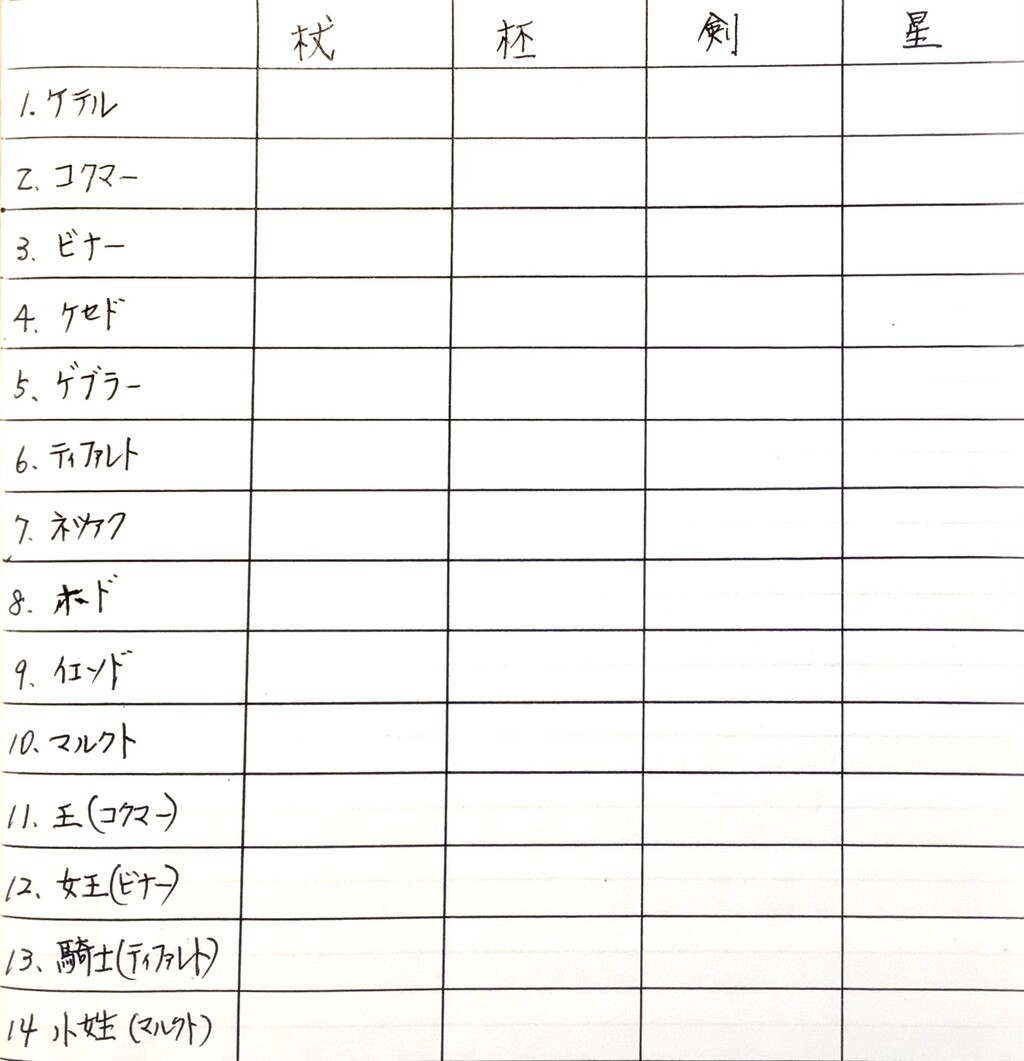 杖 杯 剣 星
1. ケテル
2、コクマー
3. ビナー
4. ケセド
5、ゲブラー
6、ティファレト
7. ネツァク
8. ホード
9、イエソド
10、マルクト
11. 王(コクマー)
12、女王(ビナー)
13、騎士(ティファレト)
14 小姓(マルクト)